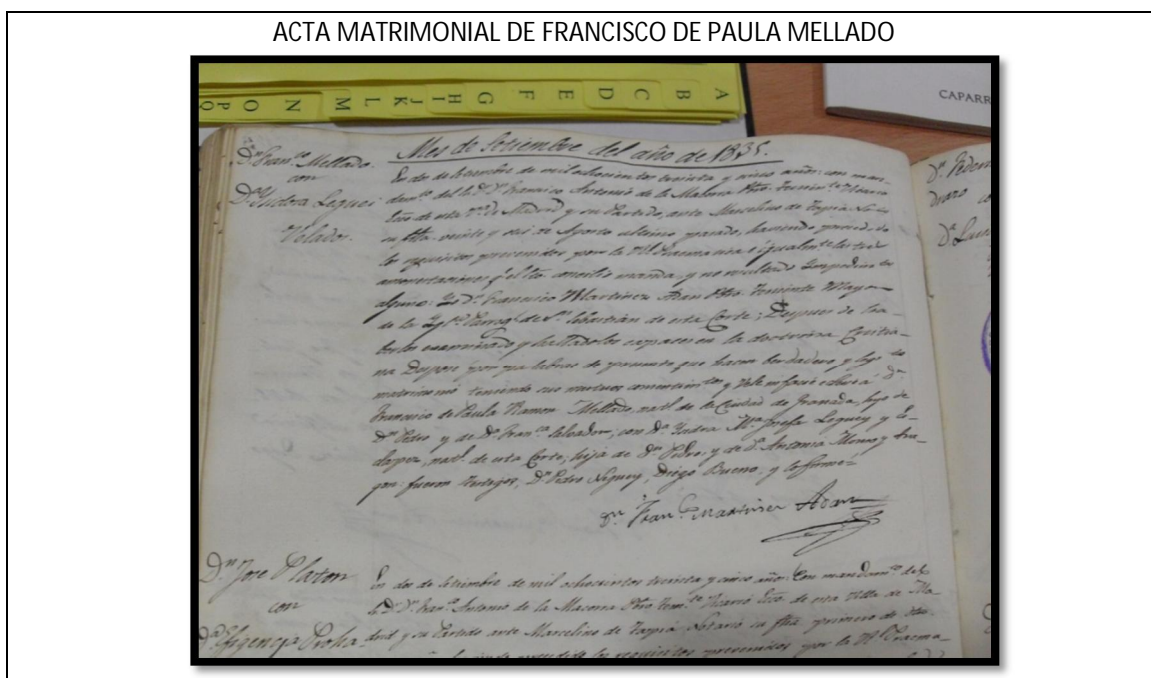 ACTA MATRIMONIAL DE FRANCISCO DE PAULA MELLADO
A B C D E F G H I J K L M N O P Q
CAPARR
Mes de Setiembre del año de 1835.
Dn. Franco. Mellado
con
Da. Ysidora Leguei
Velados.
En dos de Setiembre de mil ochocientos treinta y cinco años: con man-
damto. del Sr. Dr. Dn. Francisco Antonio de la Macorra Pbro. Tenente. Vicario
Eco. de esta Va. de Madrid y su Partido, ante Marcelino de Tapia No
su fha. veinte y seis de Agosto ultimo pasado, haviendo preced
los requisitos prevenidos por la Rl. Pragmatica e igualmte. las tres
amonestaciones q. el Sto. concilio manda, y no resultado Impedimto.
alguno: Yo Dn. Francisco Martinez Adan Pbro. Teniente Mayor
de la Yga. Parroql. de Sn. Sebastián de esta Corte; Despues de ha-
berlos examinado y hallados capaces en la doctrina Cristia-
na Despose por palabras de presente que hacen berdadero y lejmo.
matrimonio teniendo sus mutuos consentimtos. y Vele infacie eclesiæ a Dn.
Francisco de Paula Ramon Mellado, natl. de la Ciudad de Granada, hijo de
Dn. Pedro y de Da. Franca. Salvador, con Da. Ysidra Ma. Josefa Leguey y
natl. de esta Corte; hija de Dn. Pedro, y de Da. Antonia Alonso y
fueron testigos, Dn. Pedro Leguey, Diego Bueno, y lo firmé=
Dn. Franco. Martinez Adan
Dn. Jose Platon
con
Da. Efigenia
En dos de Setiembre de mil ochocientos treinta y cinco años: Con mandamto. del
Sr. Dr. Dn. Franco. Antonio de la Macorra Pbro. Tente. Vicario Eco. de esta Villa de Ma-
drid y su Partido ante Marcelino de Tapia Notario su fha. primero de
haviendo precedido los requisitos prevenidos por la Rl. Pragma-